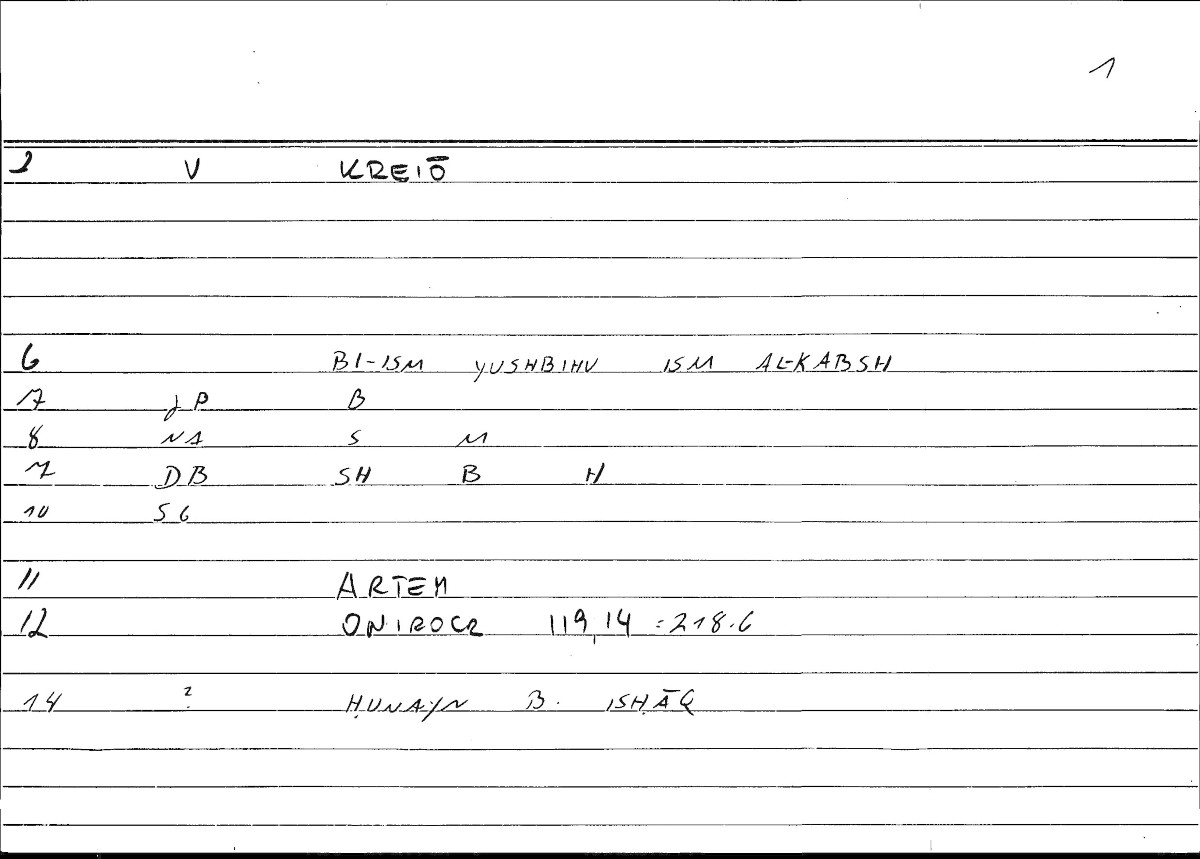 1
2 V KREIŌ
6 BI-ISM YUSHBIHU ISM AL-KABSH
7 JP B
8 NA S M
9 DB SH B H
10 SG
11 ARTEM
12 ONIROCR 119,14 = 218.6
14 ? ḤUNAYN B. ISḤĀQ